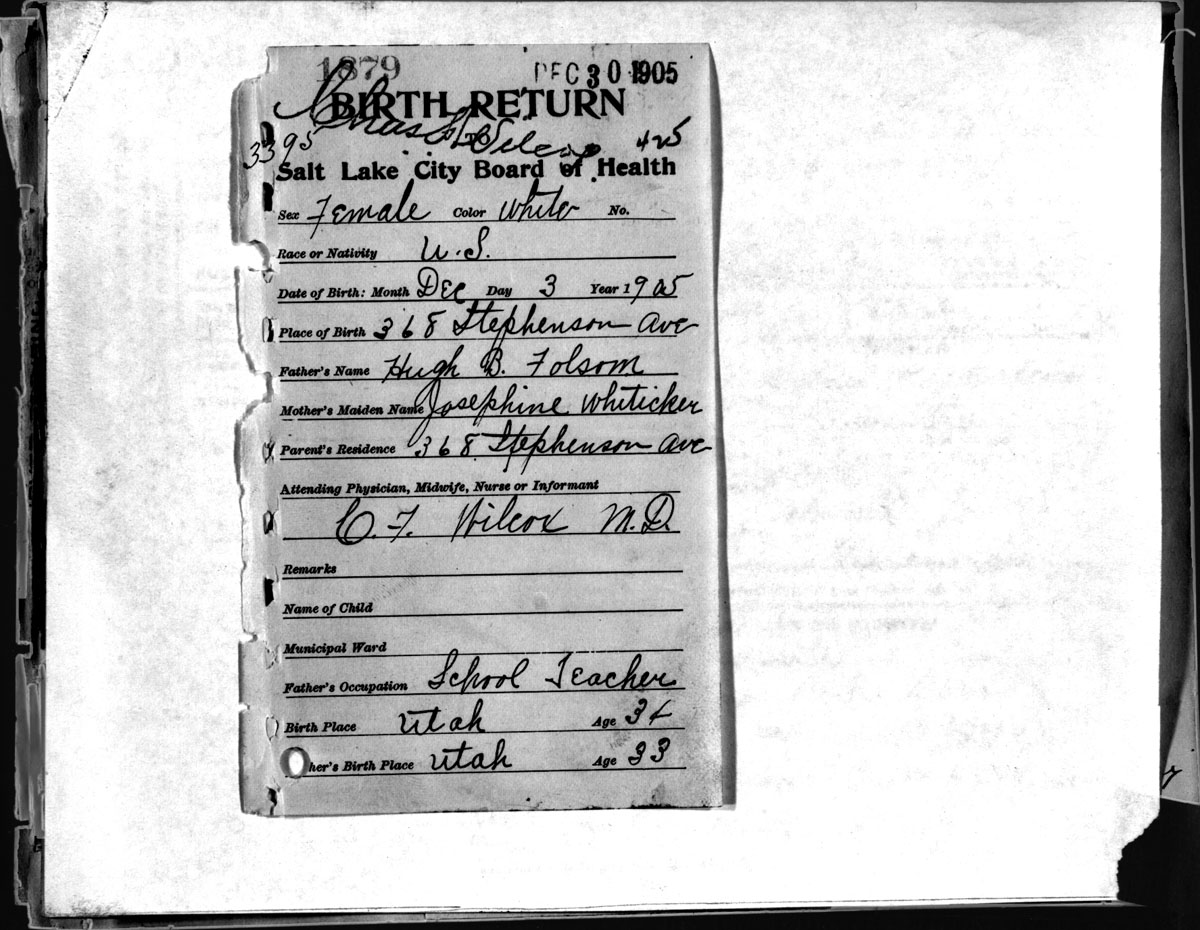 1879 DEC 30 1905
BIRTH RETURN
TO
Chas F Wilcox
3395 425
Salt Lake City Board of Health
Sex Female Color White No.
Race or Nativity U.S.
Date of Birth: Month Dec Day 3 Year 1905
Place of Birth 368 Stephenson Ave
Father's Name Hugh B. Folsom
Mother's Maiden Name Josephine Whiticker
Parent's Residence 368 Stephenson Ave
Attending Physician, Midwife, Nurse or Informant
C. F. Wilcox M.D.
Remarks
Name of Child
Municipal Ward
Father's Occupation School Teacher
Birth Place Utah Age 34
her's Birth Place Utah Age 33